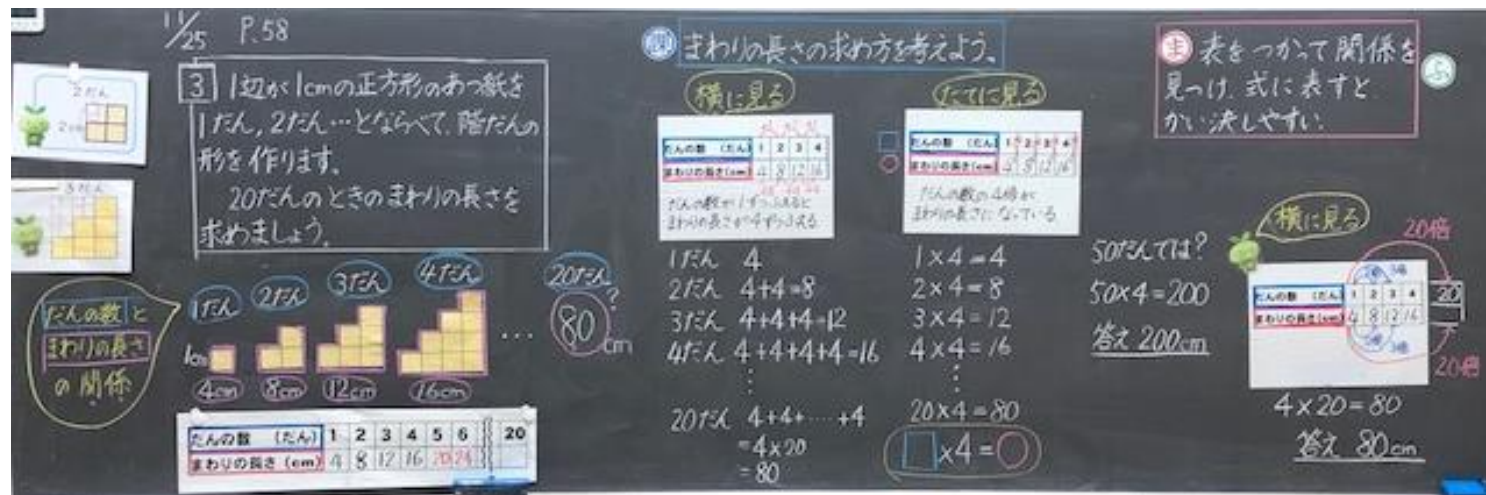 11/25 P.58
2だん
2cm
3だん
3 1辺が1cmの正方形のあつ紙を
1だん,2だん…とならべて、階だんの
形を作ります。
20だんのときのまわりの長さを
求めましょう。
だんの数と
まわりの長さ
の関係
1だん 2だん 3だん 4だん 20だん
?
1cm … 80cm
4cm 8cm 12cm 16cm
だんの数 (だん) 1 2 3 4 5 6 20
まわりの長さ(cm) 4 8 12 16 20 24
まわりの長さの求め方を考えよう。
横に見る
だんの数 (だん) 1 2 3 4
まわりの長さ(cm) 4 8 12 16
だんの数が1ずつふえると
まわりの長さが4ずつふえる
1だん 4
2だん 4+4=8
3だん 4+4+4=12
4だん 4+4+4+4=16
20だん 4+4+……+4
=4×20
=80
たてに見る
だんの数 (だん) 1 2 3 4
まわりの長さ(cm) 4 8 12 16
だんの数の4倍が
まわりの長さになっている
1×4=4
2×4=8
3×4=12
4×4=16
20×4=80
□×4=○
ま 表をつかって関係を
見つけ、式に表すと
かい決しやすい。
ふ
50だんでは?
50×4=200
答え 200cm
横に見る
20倍
2倍 3倍
だんの数 (だん) 1 2 3 4 20
まわりの長さ(cm) 4 8 12 16
2倍 3倍
20倍
4×20=80
答え 80cm